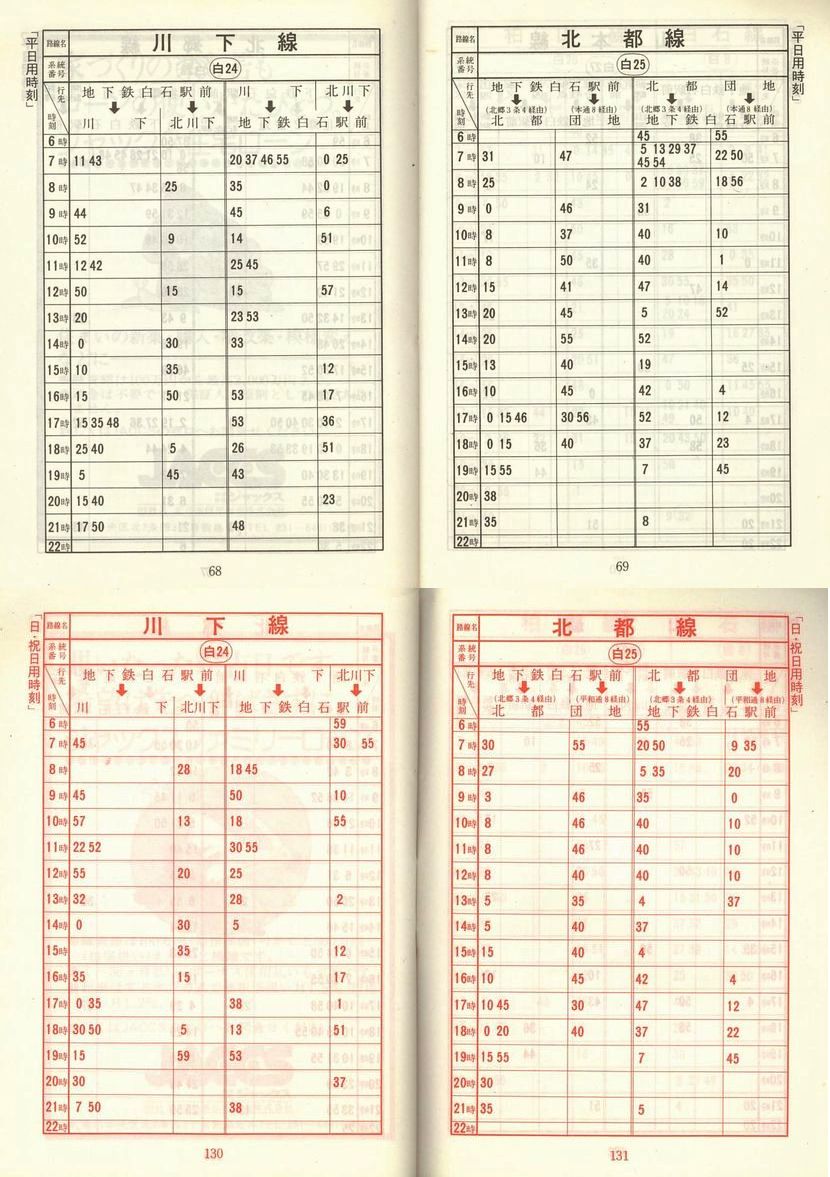 「平日用時刻」
路線名 川下線
系統番号 白24
行先 時刻 地下鉄白石駅前 川下 北川下
川下 北川下 地下鉄白石駅前
6時
7時 11 43 20 37 46 55 0 25
8時 25 35 0
9時 44 45 6
10時 52 9 14 51
11時 12 42 25 45
12時 50 15 15 57
13時 20 23 53
14時 0 30 33
15時 10 35 12
16時 15 50 53 17
17時 15 35 48 53 36
18時 25 40 5 26 51
19時 5 45 43
20時 15 40 23
21時 17 50 48
22時
68
「平日用時刻」
路線名 北都線
系統番号 白25
行先 時刻 地下鉄白石駅前 北都団地
(北郷3条4経由) (本通8経由) (北郷3条4経由) (本通8経由)
北都団地 地下鉄白石駅前
6時 45 55
7時 31 47 5 13 29 37 22 50
45 54
8時 25 2 10 38 18 56
9時 0 46 31
10時 8 37 40 10
11時 8 50 40 1
12時 15 41 47 14
13時 20 45 5 52
14時 20 55 52
15時 13 40 19
16時 10 45 42 4
17時 0 15 46 30 56 52 12
18時 0 15 40 37 23
19時 15 55 7 45
20時 38
21時 35 8
22時
69
「日・祝日用時刻」
路線名 川下線
系統番号 白24
行先 時刻 地下鉄白石駅前 川下 北川下
川下 北川下 地下鉄白石駅前
6時 59
7時 45 30 55
8時 28 18 45
9時 45 50 10
10時 57 13 18 55
11時 22 52 30 55
12時 55 20 25
13時 32 28 2
14時 0 30 5
15時 35 12
16時 35 15 17
17時 0 35 38 1
18時 30 50 5 13 51
19時 15 59 53
20時 30 37
21時 7 50 38
22時
130
「日・祝日用時刻」
路線名 北都線
系統番号 白25
行先 時刻 地下鉄白石駅前 北都団地
(北郷3条4経由) (平和通8経由) (北郷3条4経由) (平和通8経由)
北都団地 地下鉄白石駅前
6時 55
7時 30 55 20 50 9 35
8時 27 5 35 20
9時 3 46 35 0
10時 8 46 40 10
11時 8 46 40 10
12時 8 40 40 10
13時 5 35 4 37
14時 5 40 37
15時 15 40 4
16時 10 45 42 4
17時 10 45 30 47 12
18時 0 20 40 37 22
19時 15 55 7 45
20時 30
21時 35 5
22時
131